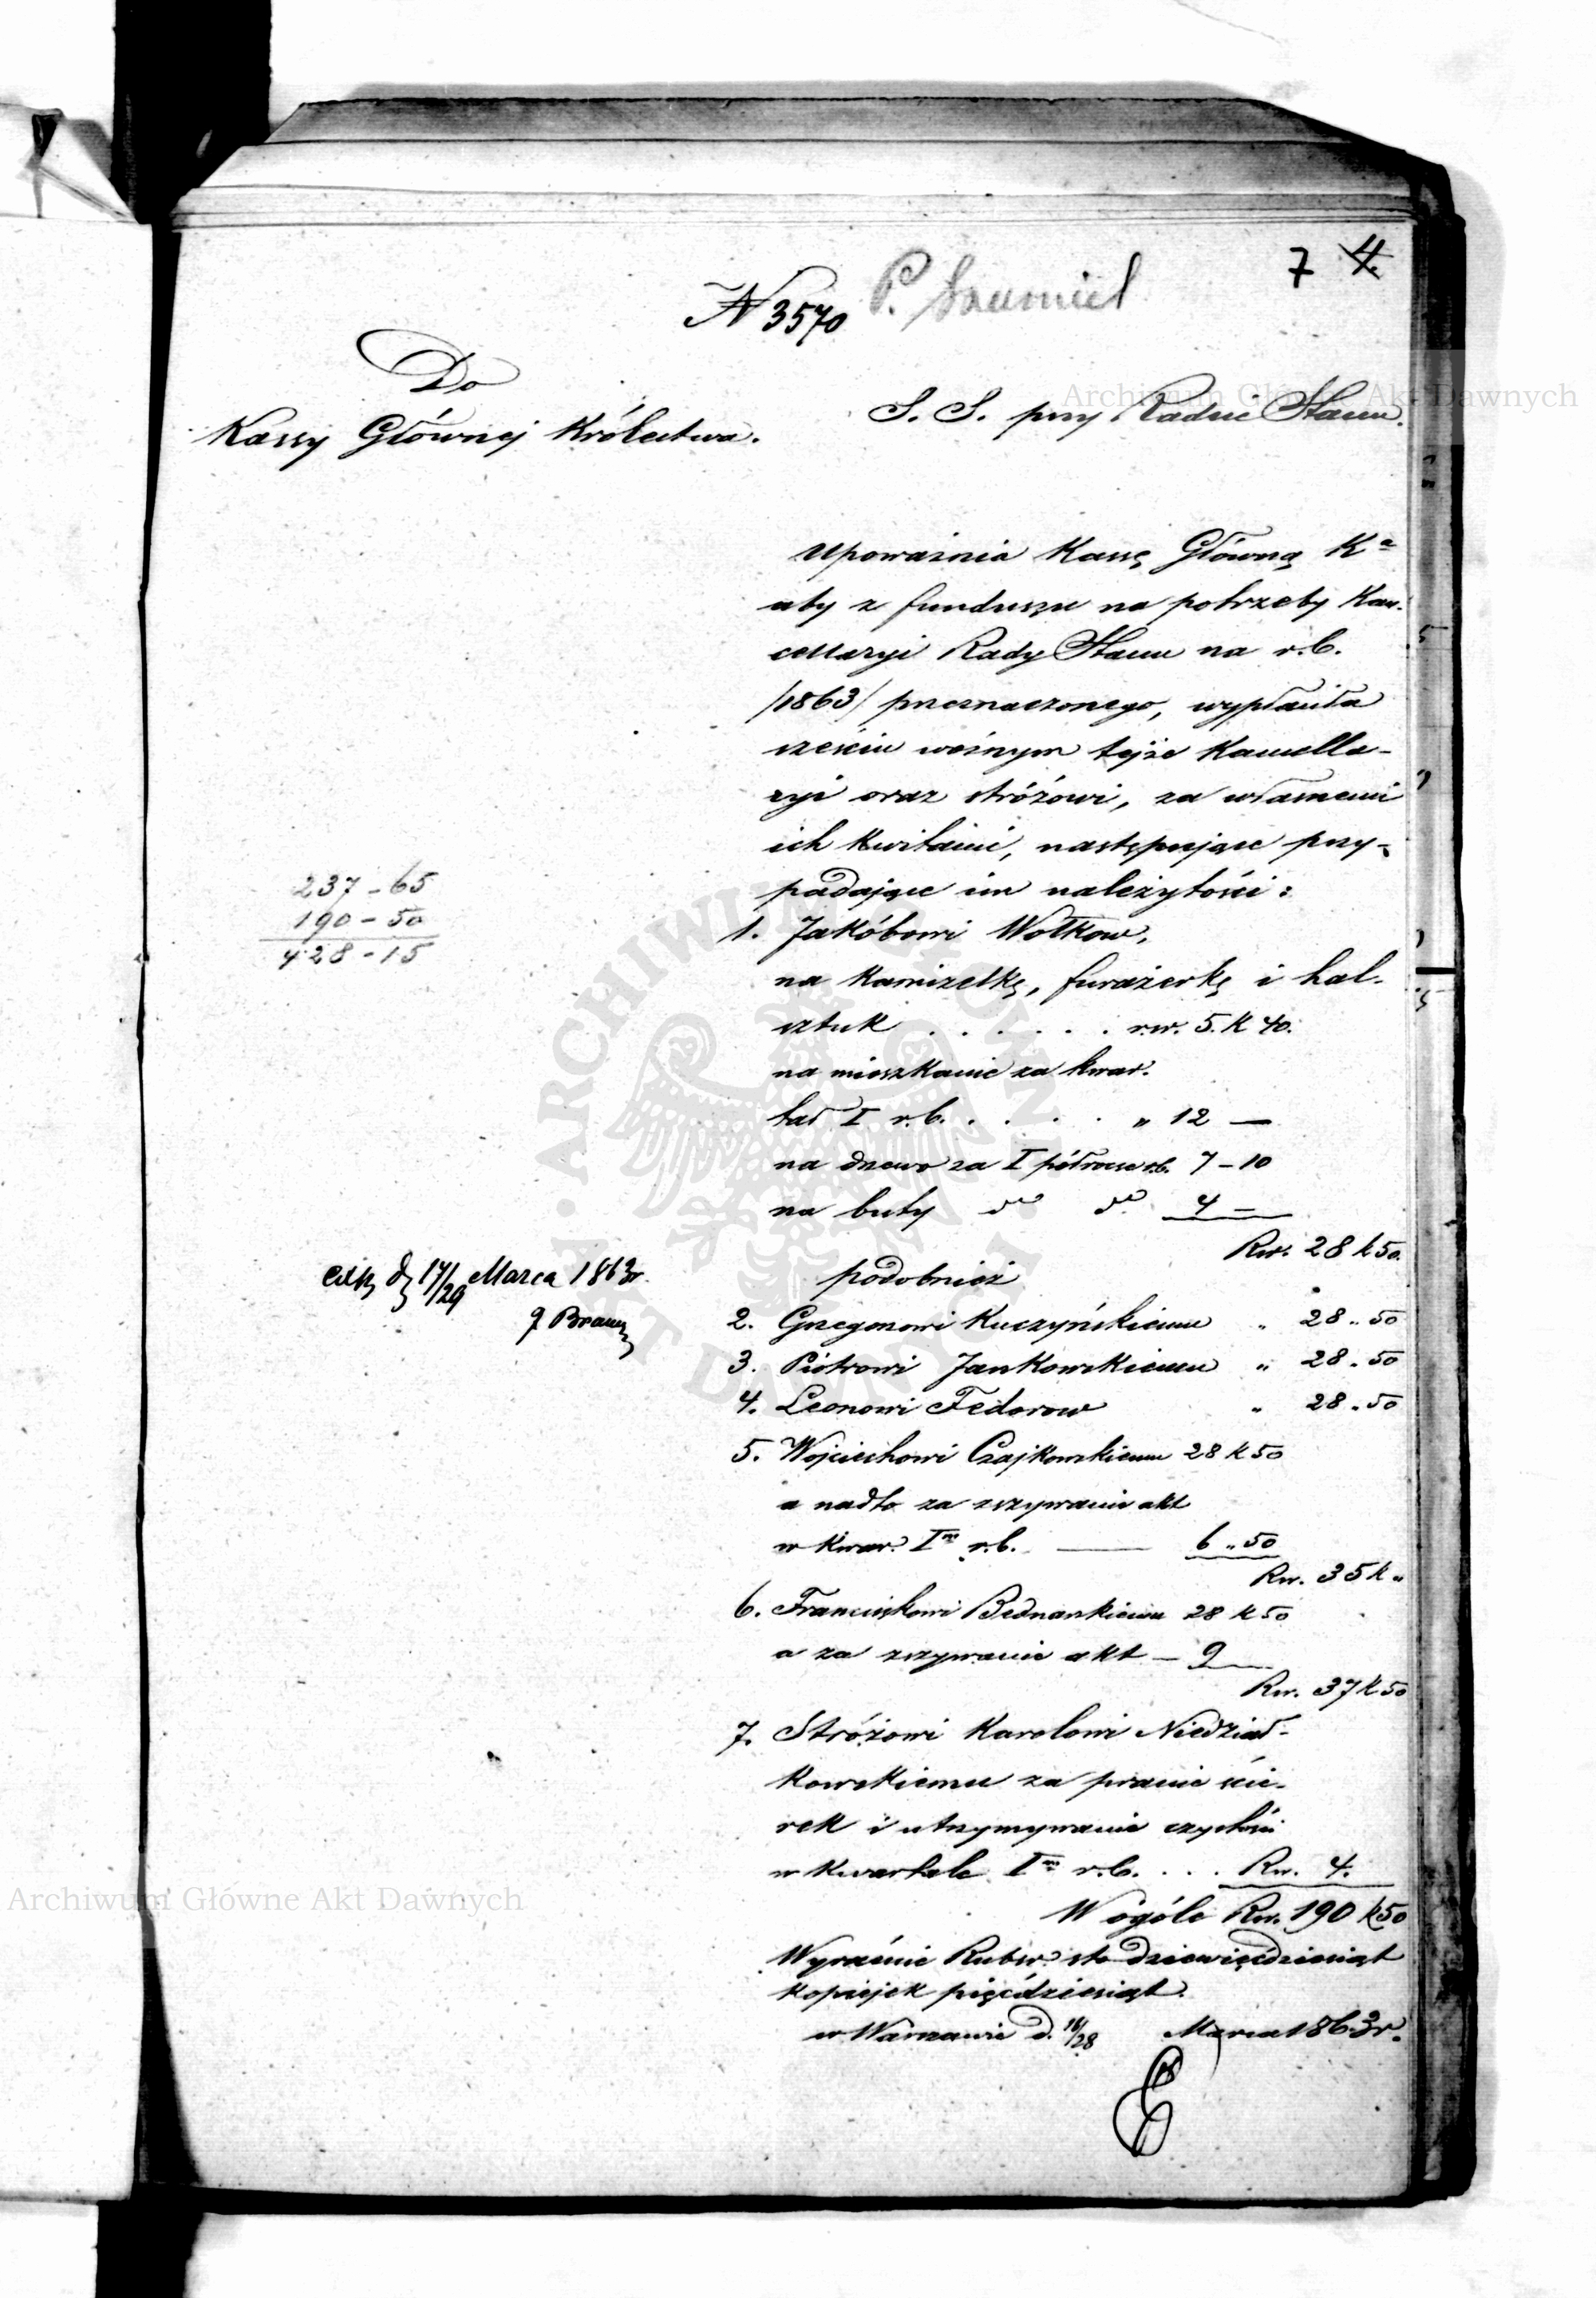 7 4.
N 3570 P. Szumiel
Do
Kassy Głównej Królestwa.
S. S. przy Radzie Stanu.
Upoważnia Kassę Główną Ka
aby z funduszu na potrzeby Kan-
cellaryi Rady Stanu na r.b.
/1863/ przeznaczonego, wypłaciła
sześciu woźnym tejże Kancella-
ryi oraz stróżowi, za własnemi
ich kwitami, następujące przy-
padające im należytości:
237 - 65
190 - 50
428 - 15
1. Jakóbowi Wołkow,
na kamizelkę, furażerkę i hal-
sztuk . . . . . . rsr. 5. k 40.
na mieszkanie za kwar-
tał I r.b. . . . . " 12 —
na drzewo za I półrocze r.b. 7 - 10
na buty do do 4 —
Rsr. 28 k 50.
exp. d. 17/29 Marca 1863 r.
J. Braun
podobnież
2. Grzegorzowi Kuczyńskiemu " 28 " 50
3. Piotrowi Jankowskiemu " 28 " 50
4. Leonowi Fedorow " 28 " 50
5. Wojciechowi Czajkowskiemu 28 k 50
a nadto za zszywanie akt
w kwar. Im r.b. — 6 " 50
Rsr. 35 k "
6. Franciszkowi Bednarskiemu 28 k 50
a za zszywanie akt — 9 —
Rsr. 37 k 50
7. Stróżowi Karolowi Niedział-
kowskiemu za pranie ście-
rek i utrzymywanie czystości
w kwartale Im r.b. . . . Rsr. 4.
W ogóle Rsr. 190 k 50
Wyraźnie Rubsr. sto dziewięćdziesiąt
kopiejek pięćdziesiąt.
w Warszawie d. 16/28 Marca 1863 r.
Archiwum Główne Akt Dawnych
Archiwum Główne Akt Dawnych
ARCHIWUM GŁÓWNE AKT DAWNYCH